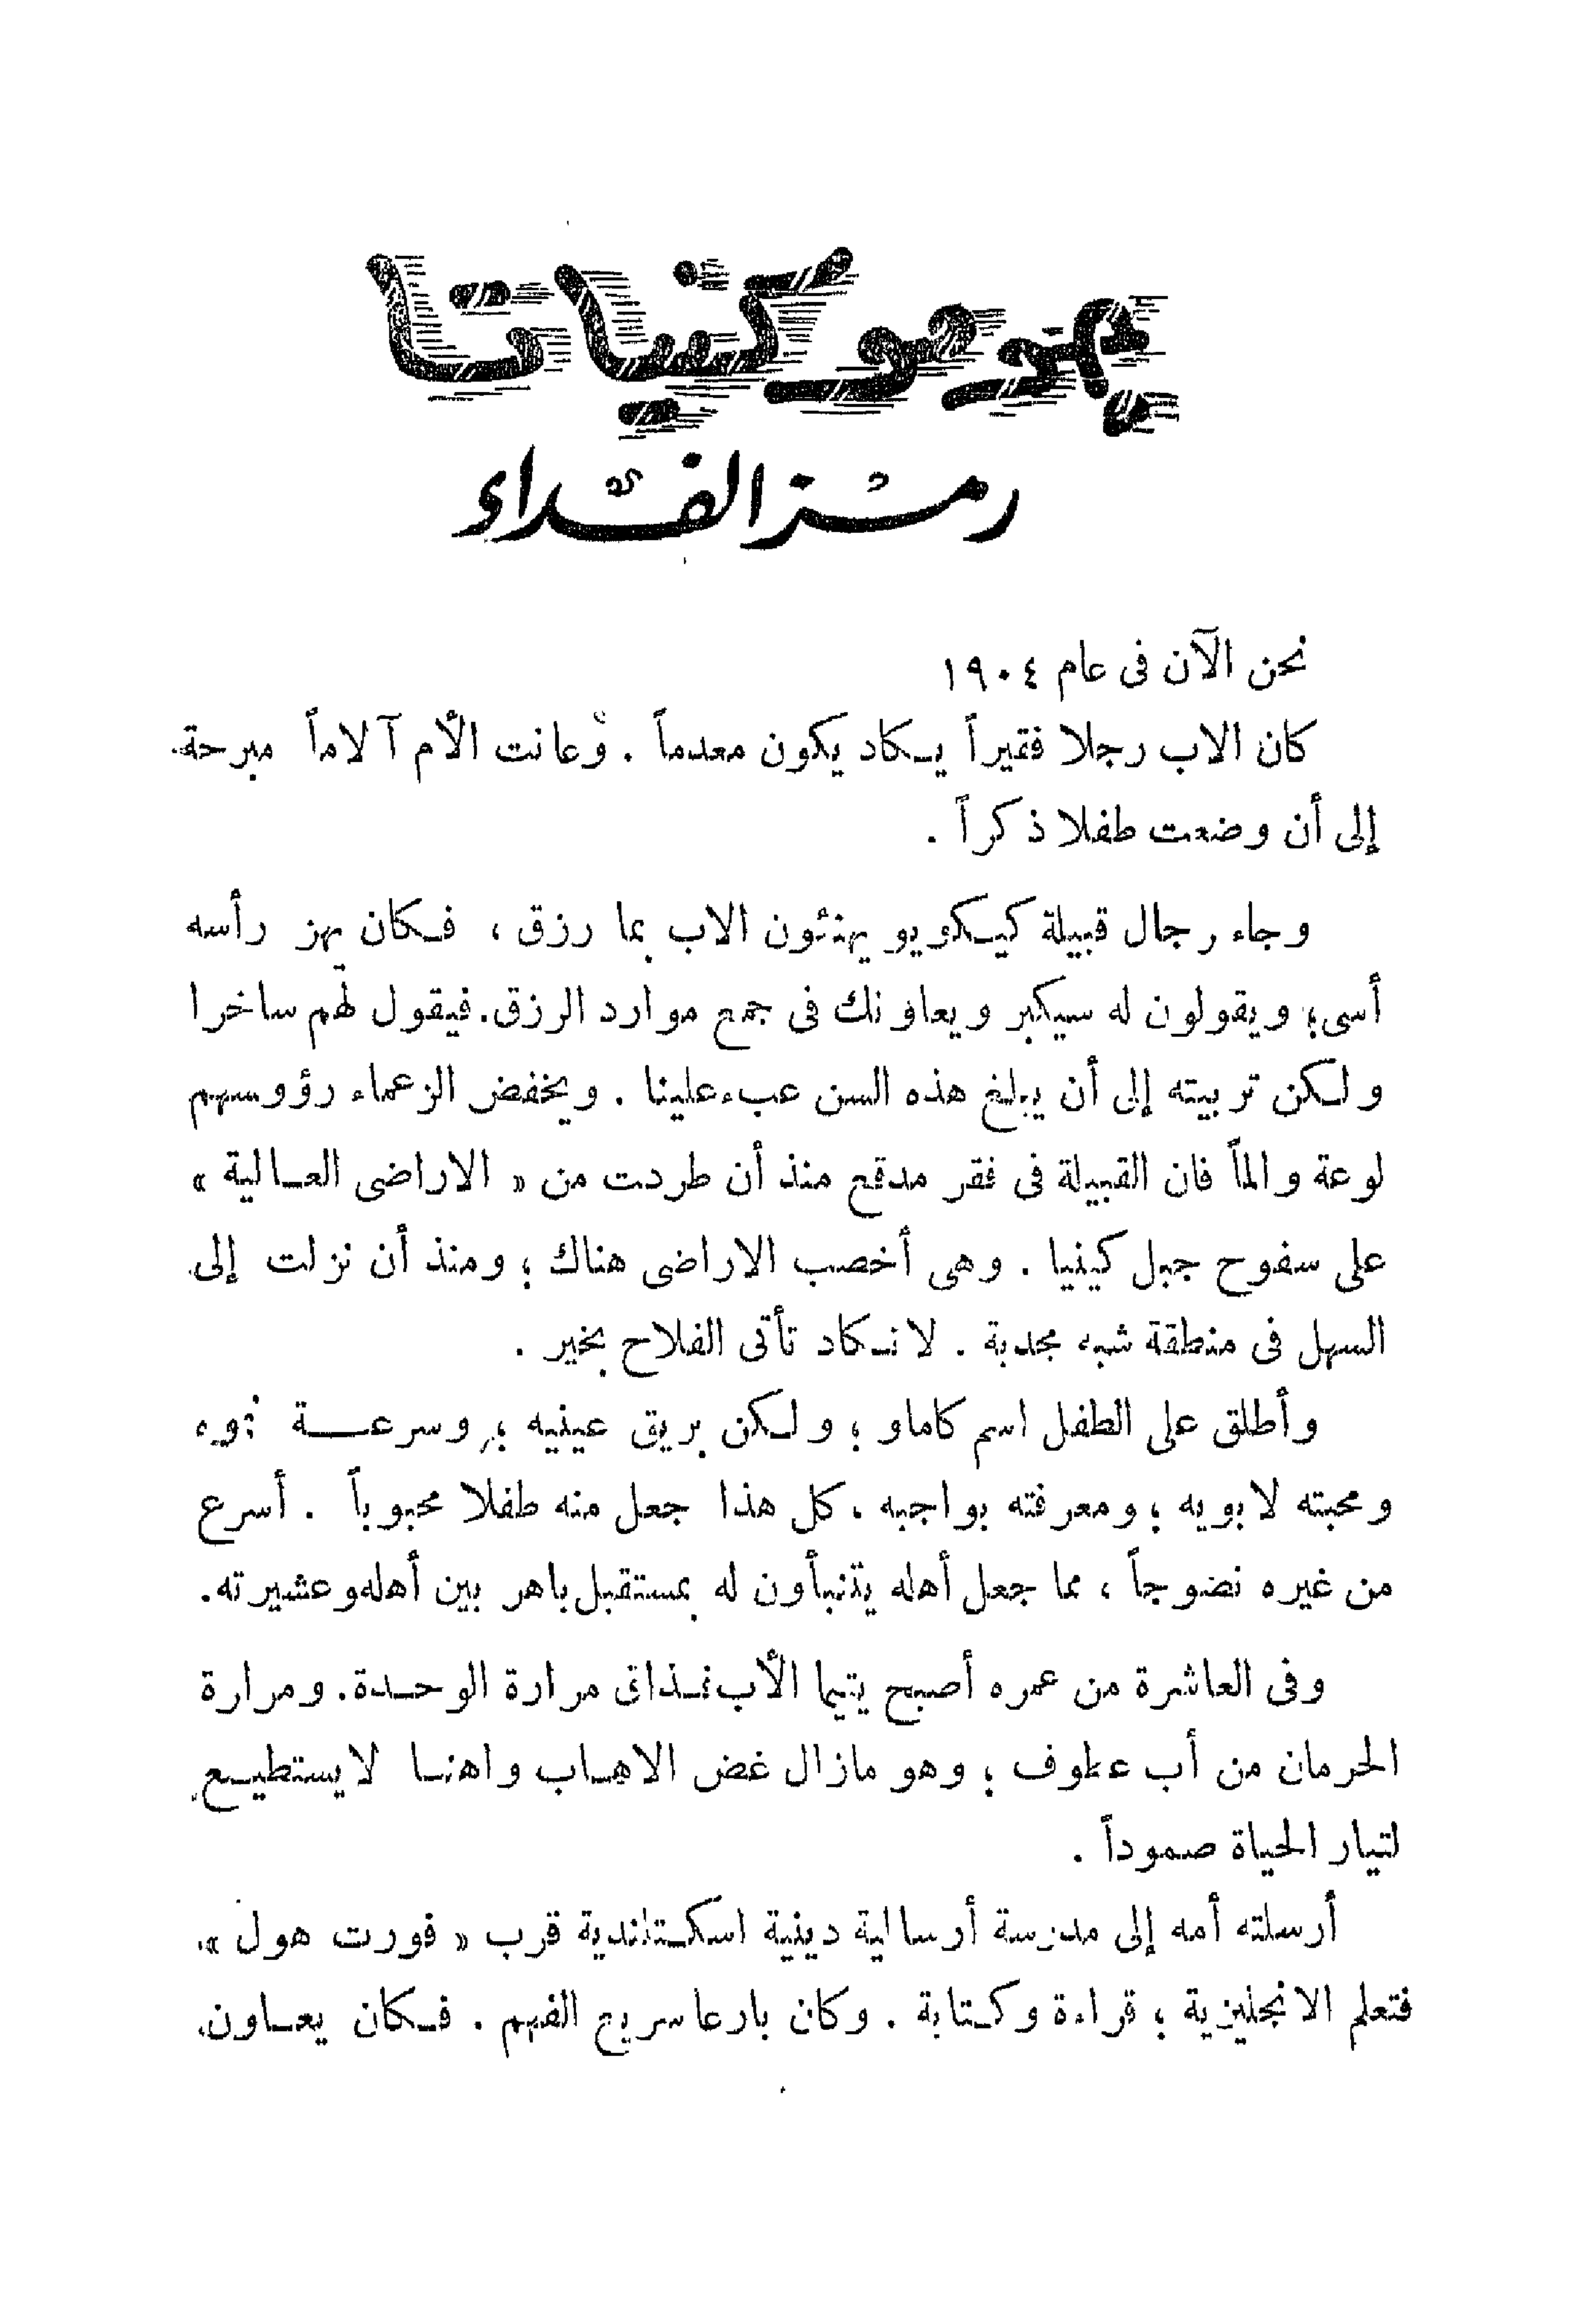 جومو كنياتا
رمز الفداء
نحن الآن فى عام ١٩٠٤
كان الاب رجلا فقيراً يكاد يكون معدماً . وعانت الأم آلاماً مبرحة
إلى أن وضعت طفلا ذكراً .
وجاء رجال قبيلة كيكويو يهنئون الاب بما رزق ، فكان يهز رأسه
أسى؛ ويقولون له سيكبر ويعاونك فى جمع موارد الرزق. فيقول لهم ساخرا
ولكن تربيته إلى أن يبلغ هذه السن عبء علينا . ويخفض الزعماء رؤوسهم
لوعة والماً فان القبيلة فى فقر مدقع منذ أن طردت من « الاراضى العالية »
على سفوح جبل كينيا . وهى أخصب الاراضى هناك ؛ ومنذ أن نزلت إلى
السهل فى منطقة شبه مجدبة . لا تكاد تأتى الفلاح بخير .
وأطلق على الطفل اسم كاماو ؛ ولكن بريق عينيه ؛ وسرعة نموه
ومحبته لابويه ؛ ومعرفته بواجبه ، كل هذا جعل منه طفلا محبوباً . أسرع
من غيره نضوجاً ، مما جعل أهله يتنبأون له بمستقبل باهر بين أهله وعشيرته.
وفى العاشرة من عمره أصبح يتيما الأب فذاق مرارة الوحدة. ومرارة
الحرمان من أب عطوف ؛ وهو مازال غض الاهاب واهنا لا يستطيع
لتيار الحياة صموداً .
أرسلته أمه إلى مدرسة أرسالية دينية اسكتلندية قرب « فورت هول ».
فتعلم الانجليزية ؛ قراءة وكتابة . وكان بارعا سريع الفهم . فكان يعاون